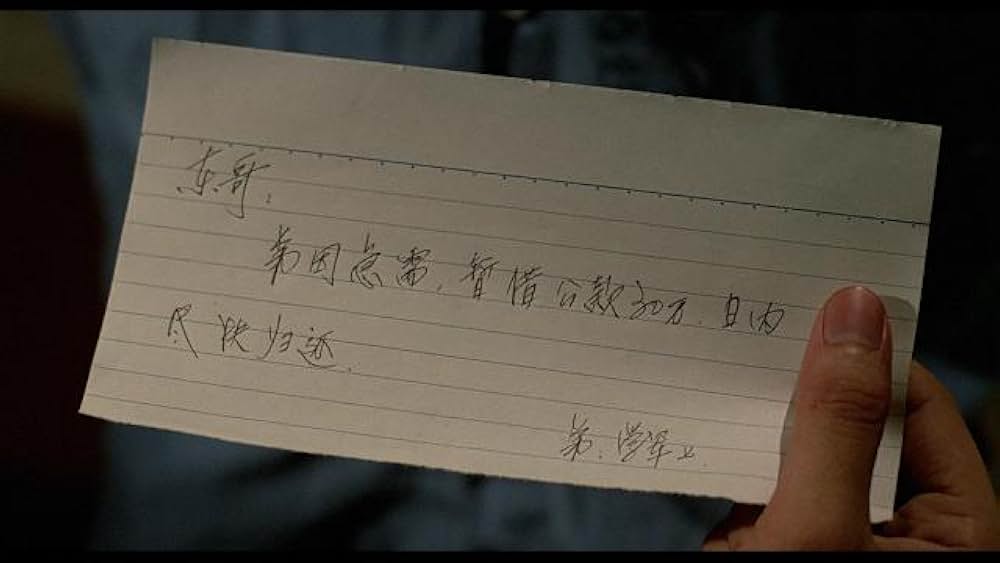 东哥，
弟因急需，暂借公款30万，日内
尽快归还．
弟．学军上．